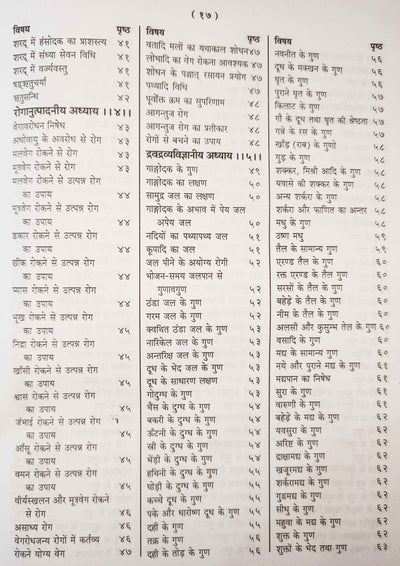 ( १७ )
विषय पृष्ठ
शरद् में हंसोदक का प्राशस्त्य ४१
शरद् में संध्या सेवन विधि ४१
शरद् में वर्ज्यवस्तु ४१
षड्ऋतुचर्या ४१
ऋतुसन्धि ४२
रोगानुत्पादनीय अध्याय ।।४।।
वेगावरोधन निषेध ४३
अधोवायु के अवरोध से रोग ४३
मलवेग रोकने से रोग ४३
मूत्रवेग रोकने से रोग ४३
मलवेग रोकने से उत्पन्न रोग
का उपाय ४४
मूत्रवेग रोकने से उत्पन्न रोग
का उपाय ४४
डकार रोकने से उत्पन्न रोग
का उपाय ४४
छींक रोकने से उत्पन्न रोग
का उपाय ४४
प्यास रोकने से उत्पन्न रोग
का उपाय ४४
भूख रोकने से उत्पन्न रोग
का उपाय ४५
निद्रा रोकने से उत्पन्न रोग
का उपाय ४५
खाँसी रोकने से उत्पन्न रोग
का उपाय ४५
श्वास रोकने से उत्पन्न रोग
का उपाय ४५
जंभाई रोकने से उत्पन्न रोग
का उपाय ४५
आँसू रोकने से उत्पन्न रोग
का उपाय ४५
वमन रोकने से उत्पन्न रोग
का उपाय ४५
वीर्यस्खलन और मूत्रवेग रोकने
से रोग ४६
असाध्य रोग ४६
वेगरोधजन्य रोगों में कर्तव्य ४६
रोकने योग्य वेग ४७
विषय पृष्ठ
वातादि मलों का यथाकाल शोधन ४७
लोभादि का वेग रोकना आवश्यक ४७
शोधन के पश्चात् रसायन प्रयोग ४७
पथ्यादि विधि ४७
पूर्वोक्त क्रम का सुपरिणाम ४८
आगन्तुज रोग ४८
आगन्तुज रोग का प्रतीकार ४८
रोगों से बचने का उपाय ४८
द्रवद्रव्यविज्ञानीय अध्याय ।।५।।
गाङ्गोदक के गुण ४९
गाङ्गोदक का लक्षण ५०
सामुद्र जल का लक्षण ५०
गाङ्गोदक के अभाव में पेय जल
अपेय जल ५०
नदियों का पथ्यापथ्य जल ५१
कूपादि का जल ५१
जल पीने के अयोग्य रोगी ५२
भोजन-समय जलपान से
गुणावगुण ५२
ठंडा जल के गुण ५२
गरम जल के गुण ५२
क्वथित ठंडा जल के गुण ५३
नारिकेल जल के गुण ५३
अन्तरिक्ष जल के गुण ५३
दूध के भेद जल के गुण ५३
दूध के साधारण लक्षण ५३
गोदुग्ध के गुण ५३
भैंस के दुग्ध के गुण ५४
बकरी के दुग्ध के गुण ५४
ऊँटनी के दुग्ध के गुण ५४
स्त्री के दुग्ध के गुण ५४
भेंड़ी के दुग्ध के गुण ५४
हथिनी के दुग्ध के गुण ५५
घोड़ी के दुग्ध के गुण ५५
कच्चे दूध के गुण ५५
पके और धारोष्ण दूध के गुण ५५
दही के गुण ५५
तक्र के गुण ५६
दही के तोड़ के गुण ५६
विषय पृष्ठ
नवनीत के गुण ५६
दूध के मक्खन के गुण ५६
घृत के गुण ५६
पुराने घृत के गुण ५७
किलाट के गुण ५७
गौ के दूध तथा घृत की श्रेष्ठता ५७
गन्ने के रस के गुण ५७
खाँड़ (राब) के गुणों ५८
गुड़ के गुण ५८
शक्कर, मिश्री आदि के गुण ५८
यवासे की शक्कर के गुण ५८
अन्य शर्करा के गुण ५८
शर्करा और फाणित का अन्तर ५८
मधु के गुण ५८
उष्ण मधु ५९
तैल के सामान्य गुण ५९
एरण्ड तैल के गुण ६०
रक्त एरण्ड तैल के गुण ६०
सरसों के तैल के गुण ६०
बहेड़े के तैल के गुण ६०
नीम के तैल के गुण ६०
अलसी और कुसुम्भ तैल के गुण ६०
वसादि के गुण ६०
मद्य के सामान्य गुण ६०
नये और पुराने मद्य के गुण ६१
मद्यपान का निषेध ६१
सुरा के गुण ६१
वारुणी के गुण ६१
बहेड़े के मद्य के गुण ६२
यवसुरा के गुण ६२
अरिष्ट के गुण ६२
द्राक्षामद्य के गुण ६२
खजूरमद्य के गुण ६२
शर्करामद्य के गुण ६२
गुडमद्य के गुण ६२
सीधु के गुण ६२
महुवा के मद्य के गुण ६२
शुक्त के गुण ६२
शुक्तों के भेद तथा गुण ६३